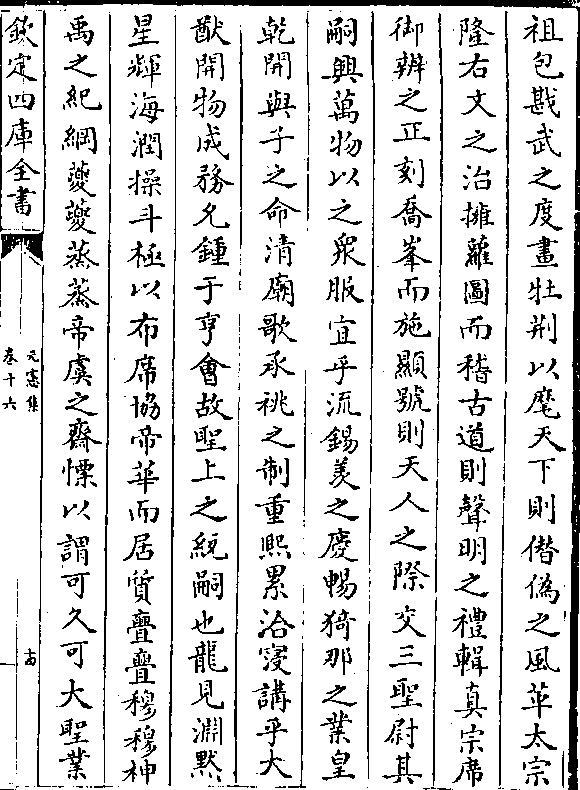 祖包戡武之度畫牡荆以麾天下則僭偽之風革太宗
隆右文之治擁蘿圖而稽古道則聲明之禮輯真宗席
御辨之正刻喬峯而施顯號則天人之際交三聖尉其
嗣興萬物以之衆服宜乎流錫羨之慶暢猗那之業皇
乾開與子之命清廟歌承祧之制重熙累洽寖講乎大
猷開物成務允鍾于亨會故聖上之統嗣也龍見淵默
星輝海潤操斗極以布席協帝華而居質亹亹穆穆神
禹之紀綱夔夔蒸蒸帝虞之齋慄以謂可久可大聖業
欽定四庫全書
元憲集
卷十六
十四